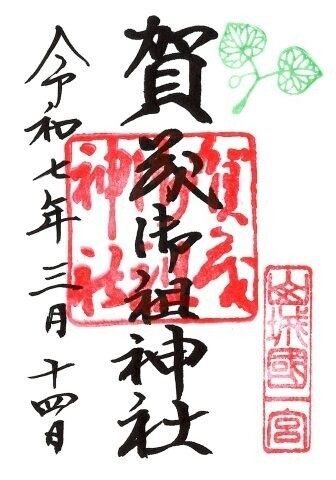 山城國一宮
賀茂御祖神社
賀茂御祖神社
令和七年三月十四日